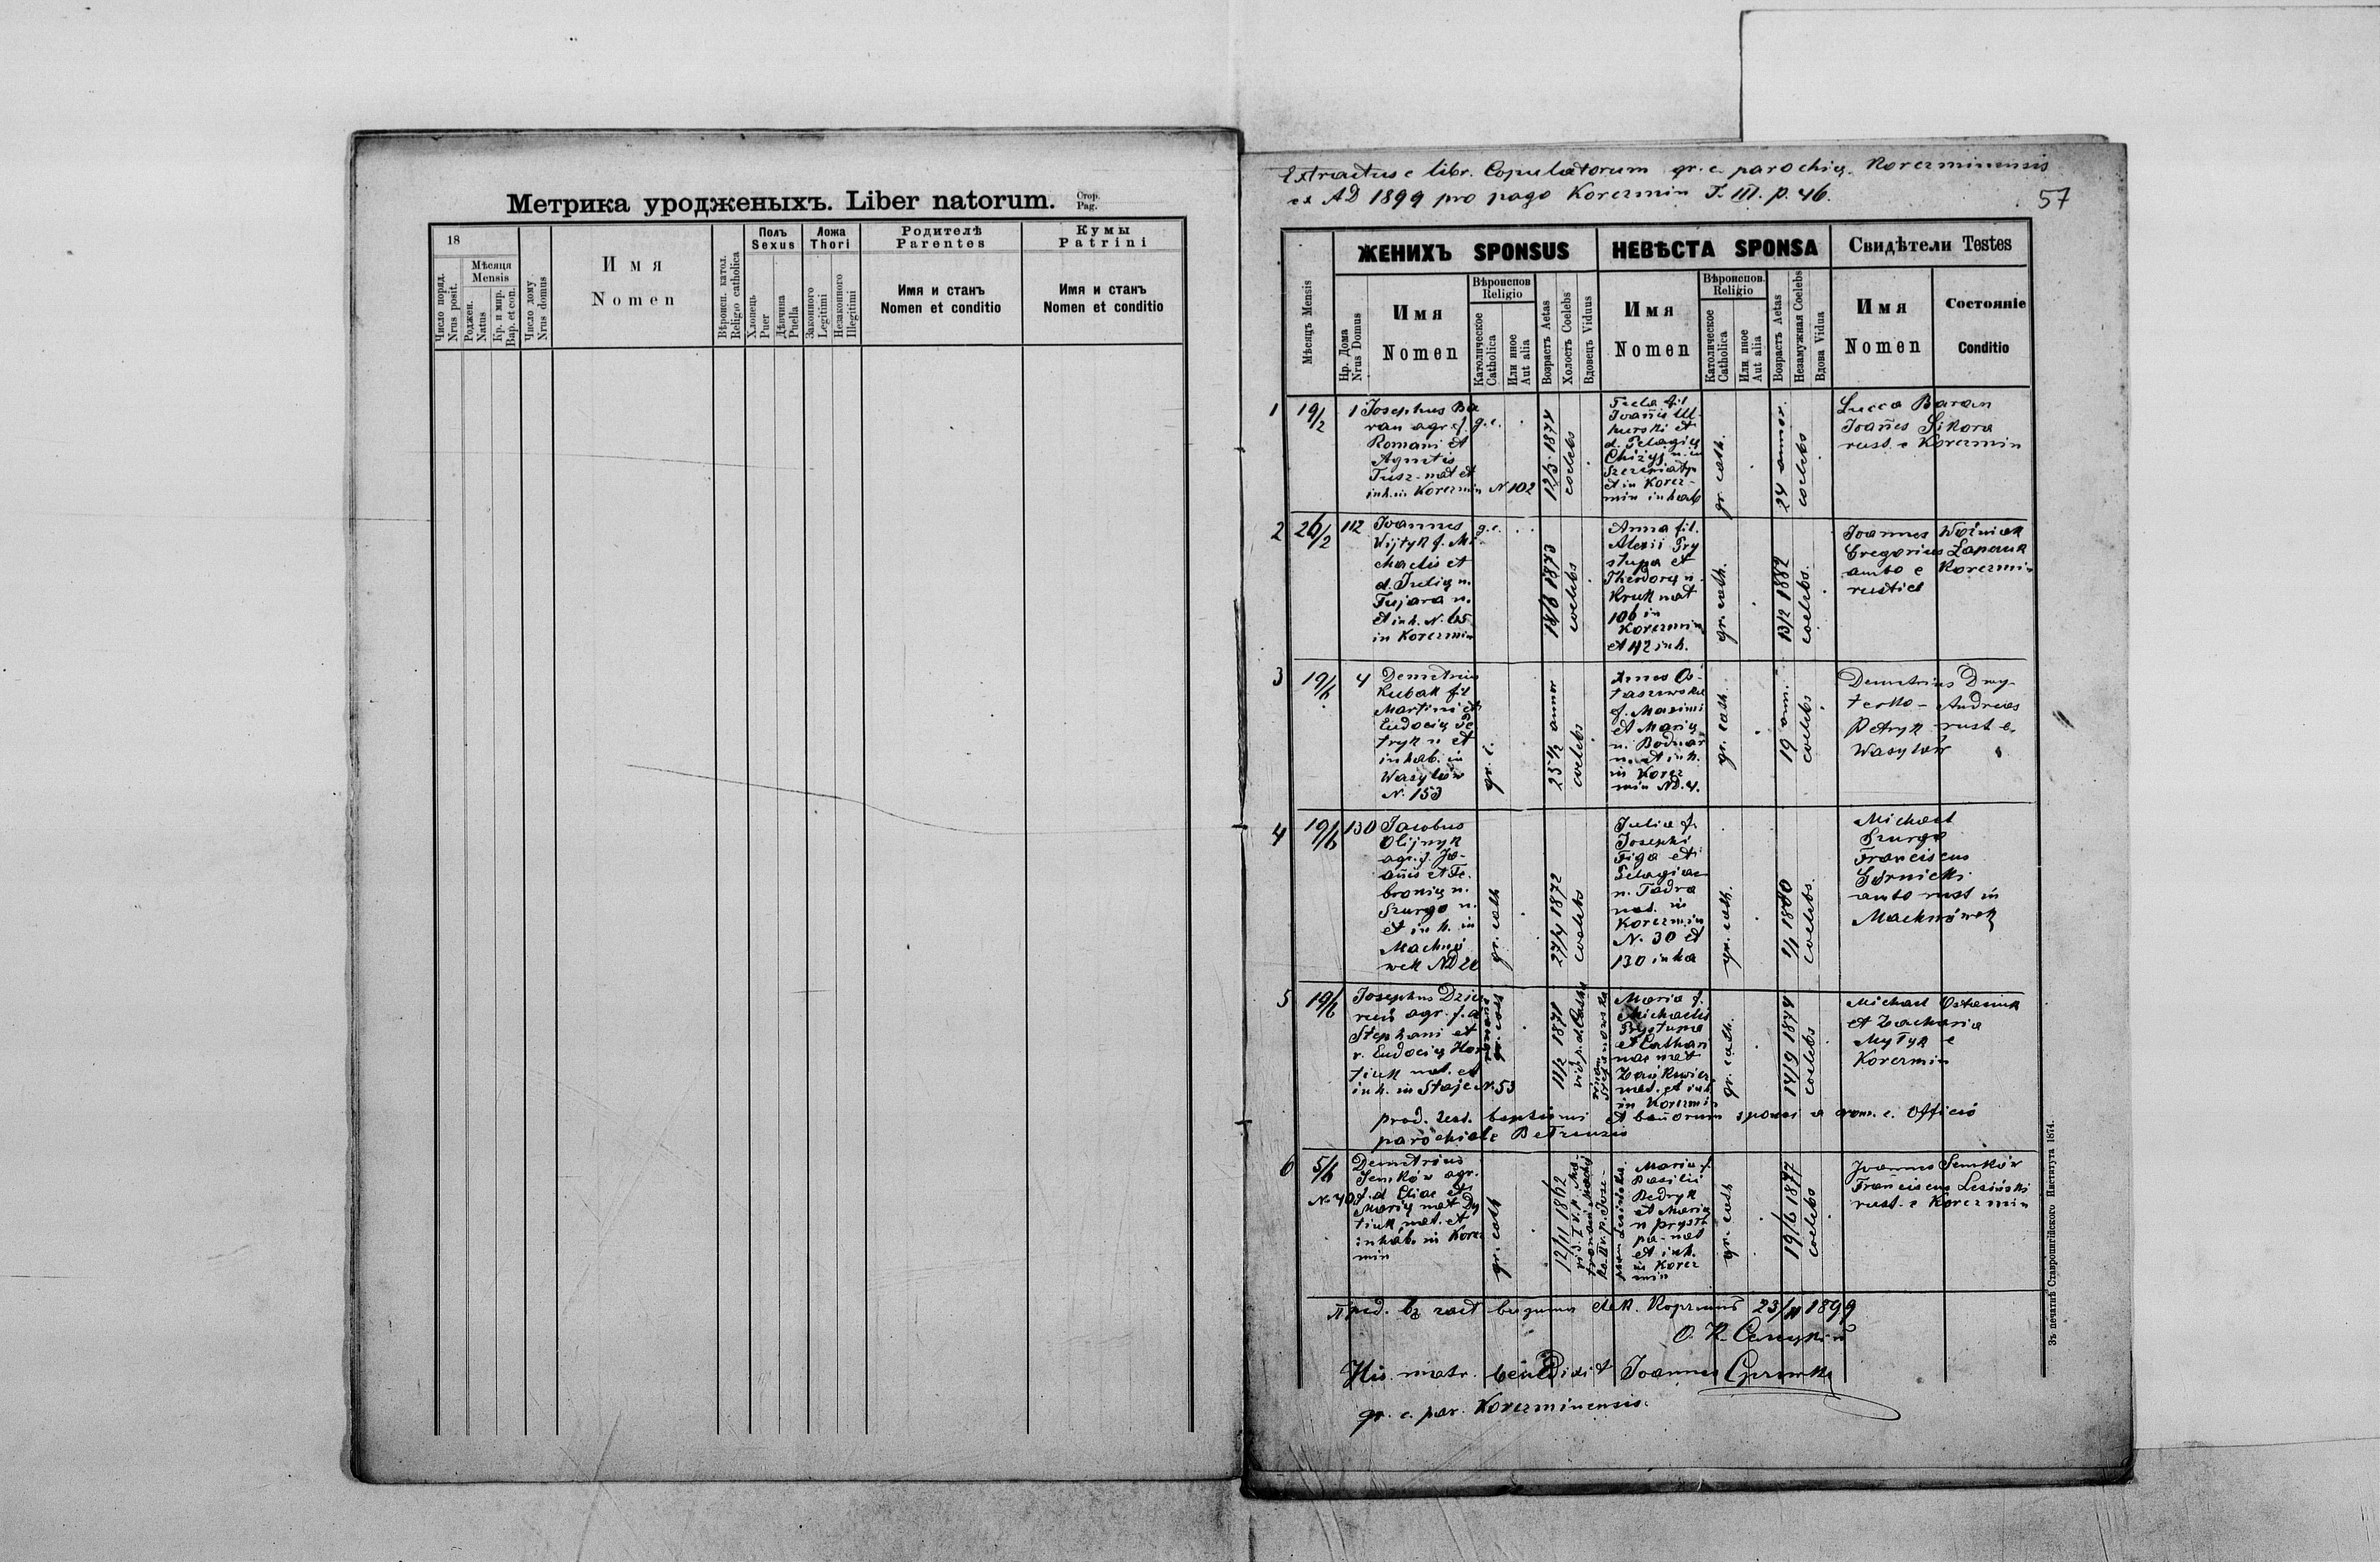 Метрика уродженыхъ. Liber natorum. Стор. Pag.
18
Число поряд. Nrus posit.
Мѣсяця Mensis
Роджен. Natus
Кр. и мир. Bap. et con.
Число дому Nrus domus
Имя Nomen
Вѣроисп. катол. Religio catholica
Полъ Sexus
Хлопець Puer
Дѣвчина Puella
Ложа Thori
Законного Legitimi
Незаконного Illegitimi
Родителѣ Parentes
Имя и станъ Nomen et conditio
Кумы Patrini
Имя и станъ Nomen et conditio
Extractus e libr. Copulatorum gr. c. parochię Korczminensis
ex AD 1899 pro pago Korczmin T. III. p. 46.
57
Мѣсяцъ Mensis
ЖЕНИХЪ SPONSUS
Нр. Дома Nrus Domus
Имя Nomen
Вѣроиспов Religio
Католическое Catholica
Или иное Aut alia
Возрастъ Aetas
Холостъ Coelebs
Вдовецъ Viduus
НЕВѢСТА SPONSA
Имя Nomen
Вѣроиспов. Religio
Католическое Catholica
Или иное Aut alia
Возрастъ Aetas
Незамужная Coelebs
Вдова Vidua
Свидѣтели Testes
Имя Nomen
Состоянie Conditio
1 19/2 1
Josephus Ba
ran agr. f.
Romani et
Agnetis
Tusz. nat et
inh. in Korczmin N 102
g. c.
12/3 1874
coelebs
Joañis
et
d. Pelagię
et in Korcz-
min inhab
gr. cath.
24 annor.
coelebs
Lucca Baran
Joañes Sikora
rust. e Korczmin
2 26/2 112
Joannes
Wijtyk f. Mi
chaelis et
d. Julię n.
Fujara n.
et inh. N. 65
in Korczmin
g. c.
18/8 1873
coelebs
Anna fil.
Alexii Pry
stupa et
Theodorę n.
Kruk nat
106 in
Korczmin
et 112 inh.
gr. cath.
13/2 1882
coelebs.
Joannes Woźniak
Gregorius Łapauk
ambo e Korczmin
rustici
3 19/6 4
Demetrius
Kubak fil
Martini et
Eudocię Pe
tryk n et
inhab. in
Wasylów
N. 153
gr. c.
25 1/2 annor
coelebs
Os-
taszewska
f. Maximi
et Marię
n. Bodnar
n. et inh.
in Korcz
min ND. 4.
gr. cath
19 ann.
coelebs
Demetrius Dmy-
terko - Andreas
Petryk rust e.
Wasylów
4 19/6 130
Jacobus
Olijnyk
agr. f. Jo-
añis et Fe.
bronię n.
Szurgo n.
et inh. in
Machnó
wek ND 22
gr. cath
27/4 1872
coelebs
Julia f.
Josephi
Figa et
Pelagiae
n. Fadra
nat. in
Korczmin
N. 30 et
130 inha
gr. cath.
1/1 1880
coelebs.
Michael
Szurgo
Franciscus
Górnicki
ambo rust in
Machnówek
5 19/6
Josephus
agr. f. d
Stephani et
r. Eudocię Hor
tiuk nat. et
inh. in Staje N. 53
gr. cath
11/2 1871
Maria f.
Michaelis
Prystupa
et Cathari
nae nat
nat. et inh.
in Korczmin
gr. cath.
14/9 1874
coelebs
Michael Ostasiuk
et Zacharia
Mytyk e
Korczmin
prod. test. baptismi et bañorum sponsi a grom. c. Officio
parochiale Betzensis
6 5/6
N. 40
Demetrius
Semków agr.
f. d Eliae et
Marię nat Dy
tiuk nat. et
inhab. in Korcz
min
gr. cath
12/11 1862
Maria f.
Basilii
Bedryk
et Marię
n Prystu
pa - nat
et inh.
in Korcz
min
gr. cath
19/6 1877
coelebs
Joannes Semków
Franciscus Lesiński
rust. e Korczmin
23/11 1899
His matr. benedixit Joannes
gr. c. par. Korczminensis.
Зъ печатнѣ Ставропигійского Института 1874.